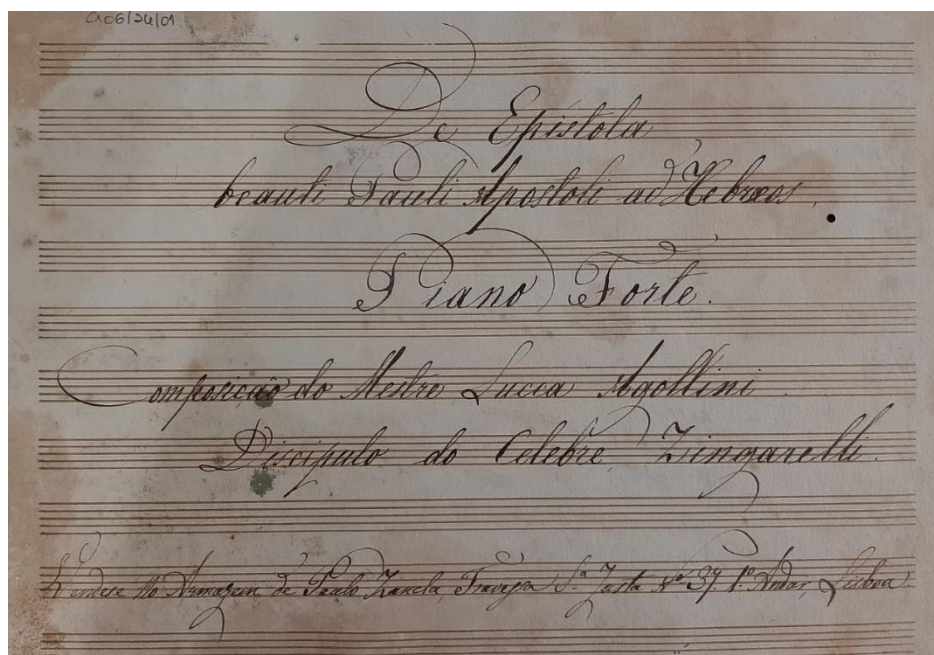 A06/24/01
De Epistola
beauti Pauli Apostoli ad Hebræos.
Piano Forte.
Composição do Mestre Lucca Agollini
Discipulo do Celebre Zingarelli.
Vendese No Armazem de Paulo Zancla, Travessa Sta. Justa No. 37. 1o Andar, Lisboa.